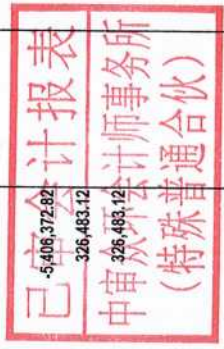 已审会计报表
中审众环会计师事务所
（特殊普通合伙）
-5,406,372.82
326,483.12
326,483.12